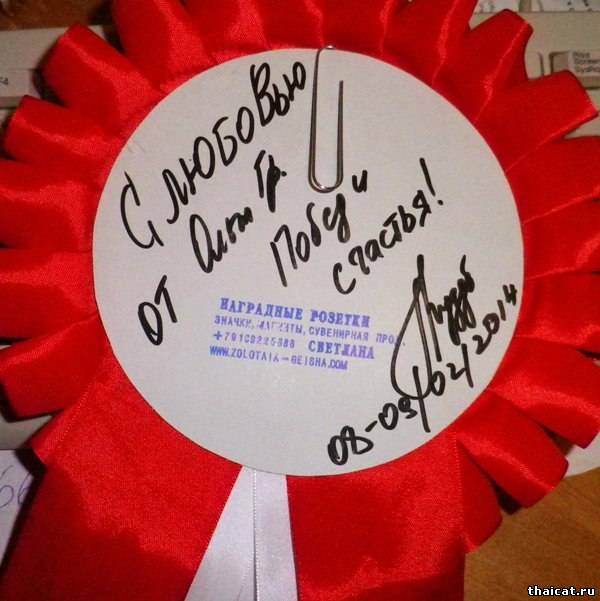 С ЛЮБОВЬЮ
ОТ Ольги Гр.
Побед и
счастья!
НАГРАДНЫЕ РОЗЕТКИ
ЗНАЧКИ, МАГНИТЫ, СУВЕНИРНАЯ ПРОД.
СВЕТЛАНА
WWW.ZOLOTAIA-GEISHA.COM
08-09/02/2014
thaicat.ru